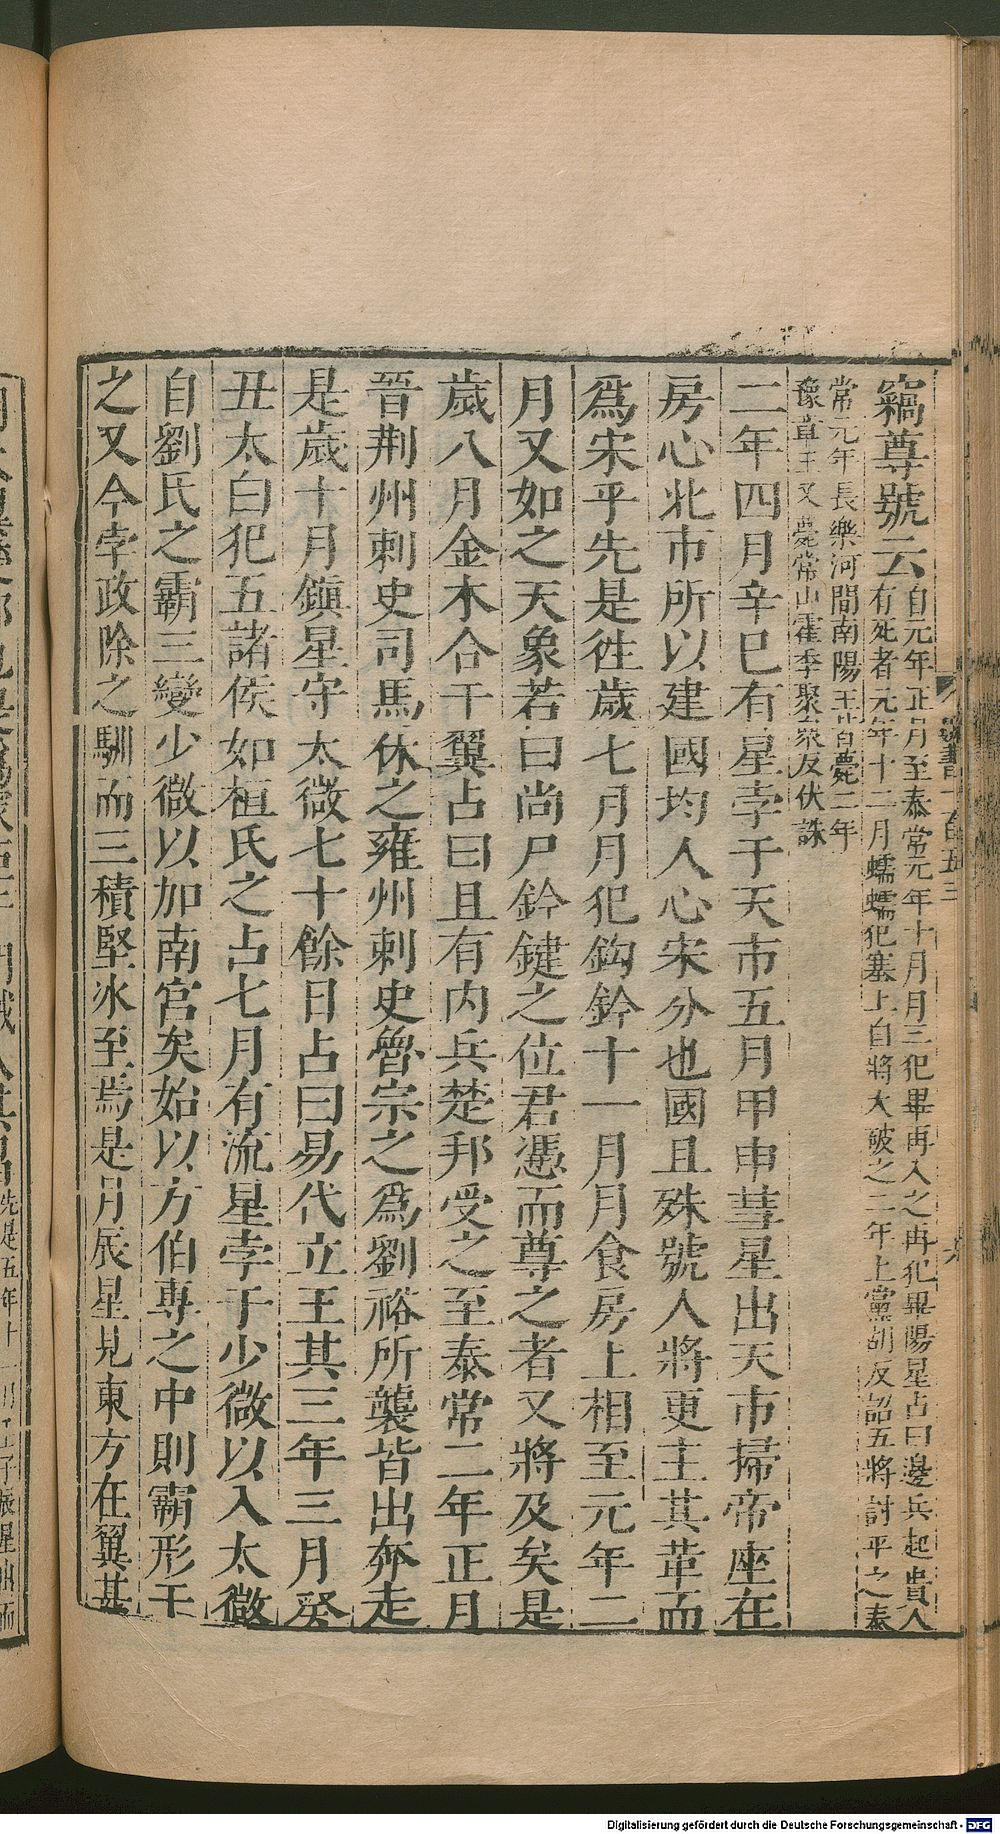 竊尊號云自元年正月至泰常元年十月月三犯畢再入之再犯畢陽星占曰邊兵起貴人
有死者元年十二月蠕蠕犯塞上自將大破之二年上黨胡反詔五將討平之泰
常元年長樂河間南陽王皆薨二年
豫章王又薨常山霍季聚衆反伏誅
二年四月辛巳有星孛于天市五月甲申彗星出天市掃帝座在
房心北市所以建國均人心宋分也國且殊號人將更主其革而
爲宋乎先是徃歲七月月犯鈎鈐十一月月食房上相至元年二
月又如之天象若曰尚尸鈐鍵之位君憑而尊之者又將及矣是
歲八月金木合于翼占曰且有内兵楚邦受之至泰常二年正月
晉荆州刺史司馬休之雍州刺史魯宗之爲劉裕所襲皆出奔走
是歲十月鎮星守太微七十餘日占曰易代立王其三年三月癸
丑太白犯五諸侯如桓氏之占七月有流星孛于少微以入太微
自劉氏之霸三變少微以加南宮矣始以方伯專之中則霸形干
之又今孛政除之馴而三積堅冰至焉是月辰星見東方在翼甚
先是五年十一月
Digitalisierung gefördert durch die Deutsche Forschungsgemeinschaft - DFG